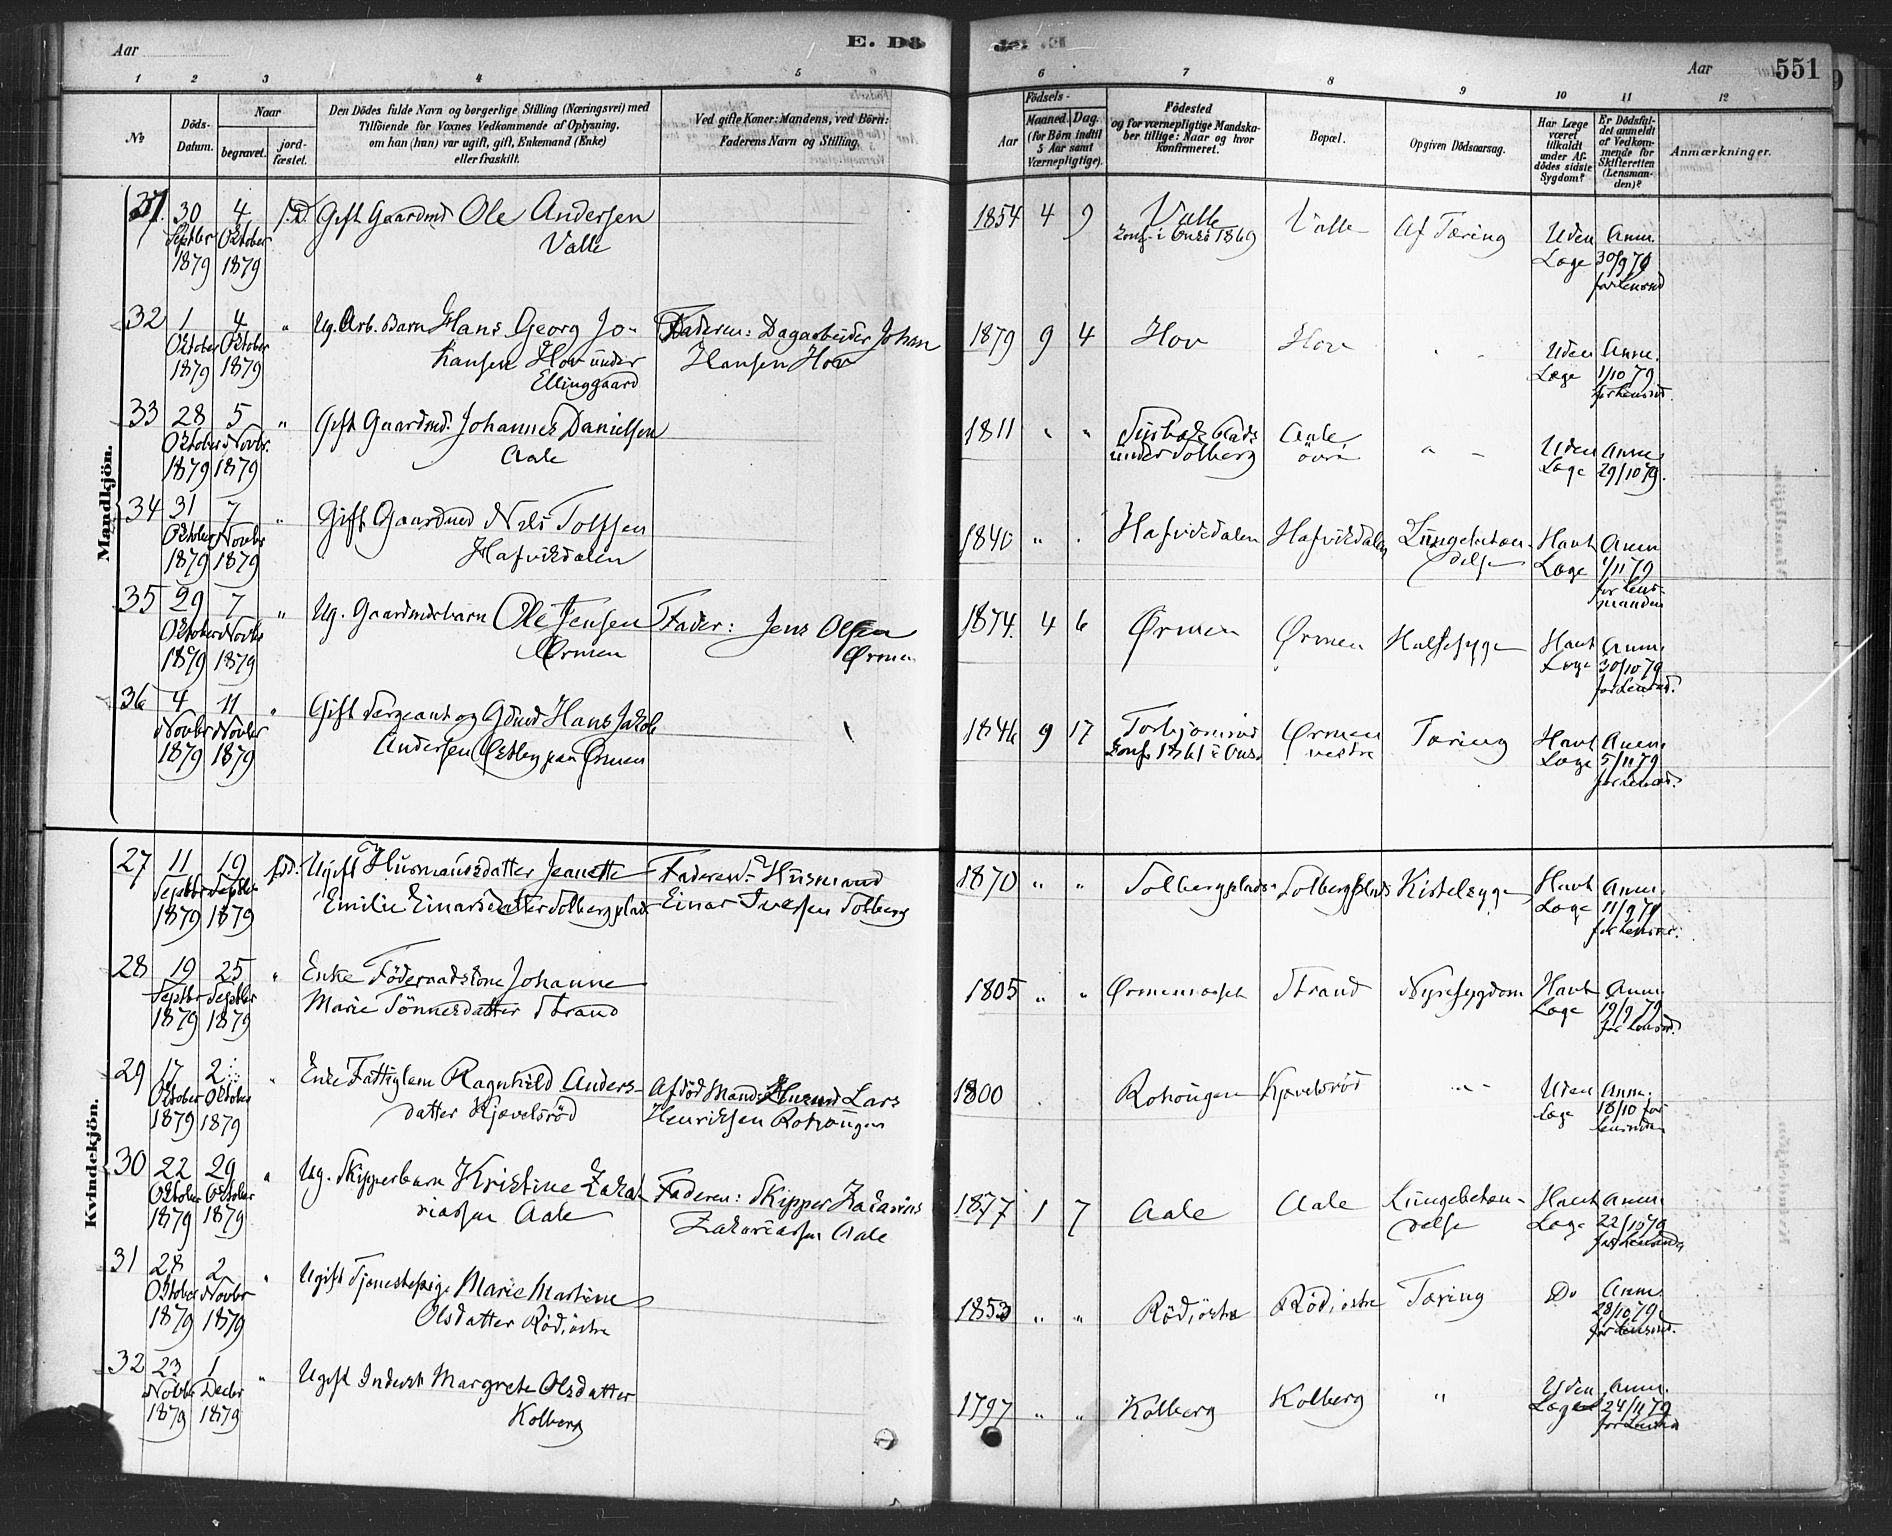 Aar
E. Dö
551
Aar
1 2 3 4 5 6 7 8 9 10 11 12
No
Döds-
Datum.
Naar
begravet.
jord-
fæstet.
Den Dödes fulde Navn og borgerlige Stilling (Næringsvei) med
Tilföiende for Voxnes Vedkommende af Oplysning,
om han (hun) var ugift, gift, Enkemand (Enke)
eller fraskilt.
Ved gifte Koner: Mandens, ved Börn:
Faderens Navn og Stilling.
Födsels-
Aar
Maaned. Dag.
(for Börn indtil
5 Aar samt
Værnepligtige).
Födested
og for værnepligtige Mandska-
ber tillige: Naar og hvor
konfirmeret.
Bopæl.
Opgiven Dödsaarsag.
Har Læge
været
tilkaldt
under Af-
dödes sidste
Sygdom?
Er Dödsfal-
det anmeldt
af Vedkom-
mende for
Skifteretten
(Lensman-
den)?
Anmærkninger.
Mandkjön.
31. 30 4 J.D. Gift Gaardmd Ole Andersen 1854 4 9 Valle Valle Af Tæring Uden Anm.
Septbr Oktober Valle Konf. i Onsö 1869 Læge 30/9 79
1879 1879 for Lensmd
32 1 4 " Ug. Arb. Barn Hans Georg Jo- Faderen: Dagarbeider Johan 1879 9 4 Hov Hov " " Uden Anm.
Oktober Oktober hansen Hov under Hansen Hov Læge 1/10 79
1879 1879 Ellinggaard for Lensmd.
33 28 5 " Gift Gaardmd. Johannes Danielsen 1811 " " Plads Aale " " Uden Anm.
Oktober Novbr. Aale under Solberg övre Læge 29/10 79.
1879 1879
34 31 7 " Gift Gaardmd Nils Tolfsen 1840 " " Hafvikdalen Hafvikdalen Lungebetæn- Havt Anm
Oktober Novbr Hafvikdalen delse Læge 1/11 79
1879 1879 for Lens-
manden
35 29 7 " Ug. Gaardmdsbarn Ole Jensen Fader: Jens Olsen 1874. 4 6 Ørmen Ørmen Halssyge Havt Anm.
Oktober Novbr Ørmen Ørmen Læge 30/10 79
1879 1879 for Lensmd.
36 4 11 " Gift Sergeant og Gdmd Hans Jakob 1846 9 17 Torbjörnröd Ørmen Tæring Havt Anm.
Novbr Novbr Andersen Østby paa Ørmen Konf. 1861 i Onsö vestre Læge 5/11 79
1879 1879 for Lensmd.
Kvindekjön.
27 11 19 J.D. Ugift Husmandsdatter Jeanette Faderen: Husmand 1870 " " Solbergplads Solbergplads Kirtelsyge Havt Anm.
Septbr Septbr Emilie Einarsdatter Solbergplads Einar Iversen Solberg Læge 11/9 79
1879 1879 for Lensmd.
28 19 25 " Enke Föderaadskone Johanne 1805 " " Strand Nyresygdom Havt Anm.
Septbr Septbr Marie Tönnesdatter Strand Læge 19/9 79
1879 1879 for Lensmd.
29 17 2 " Enke Fattiglem Ragnhild Anders- Afdöd Mand: Husmd Lars 1800 Rohougen Kjævelsröd " " Uden Anm.
Oktober Oktober datter Kjævelsröd Henriksen Rohougen Læge 18/10 for
1879 1879 Lensmdn
30 22 29 " Ug. Skipperbarn Kristine Zaka- Faderen: Skipper Zakarias 1877 1 7 Aale Aale Lungebetæn- Havt Anm.
Oktober Oktober riassen Aale Zakariassen Aale delse Læge 22/10 79
1879 1879 for Lensmdn
31 28 2 " Ugift Tjenestepige Marie Martine 1853 " " Röd, östre Röd, östre Tæring Do Anm.
Oktober Novbr Olsdatter Röd, östre 28/10 79
1879 1879 for Lensmd.
32 23 1 " Ugift Inderst Margrete Olsdatter 1797 " " Kolberg Kolberg " Uden Anm.
Novbr Decbr Kolberg Læge 24/11 79
1879 1879 for Lensmdn